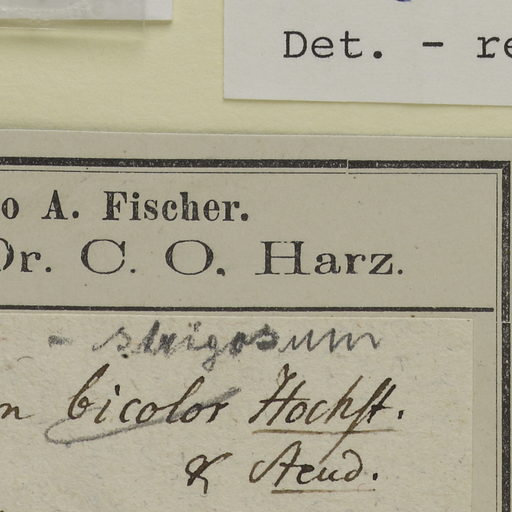 Det. - re
o A. Fischer.
Dr. C. O. Harz.
- strigosum
n bicolor Hochst.
& Steud.